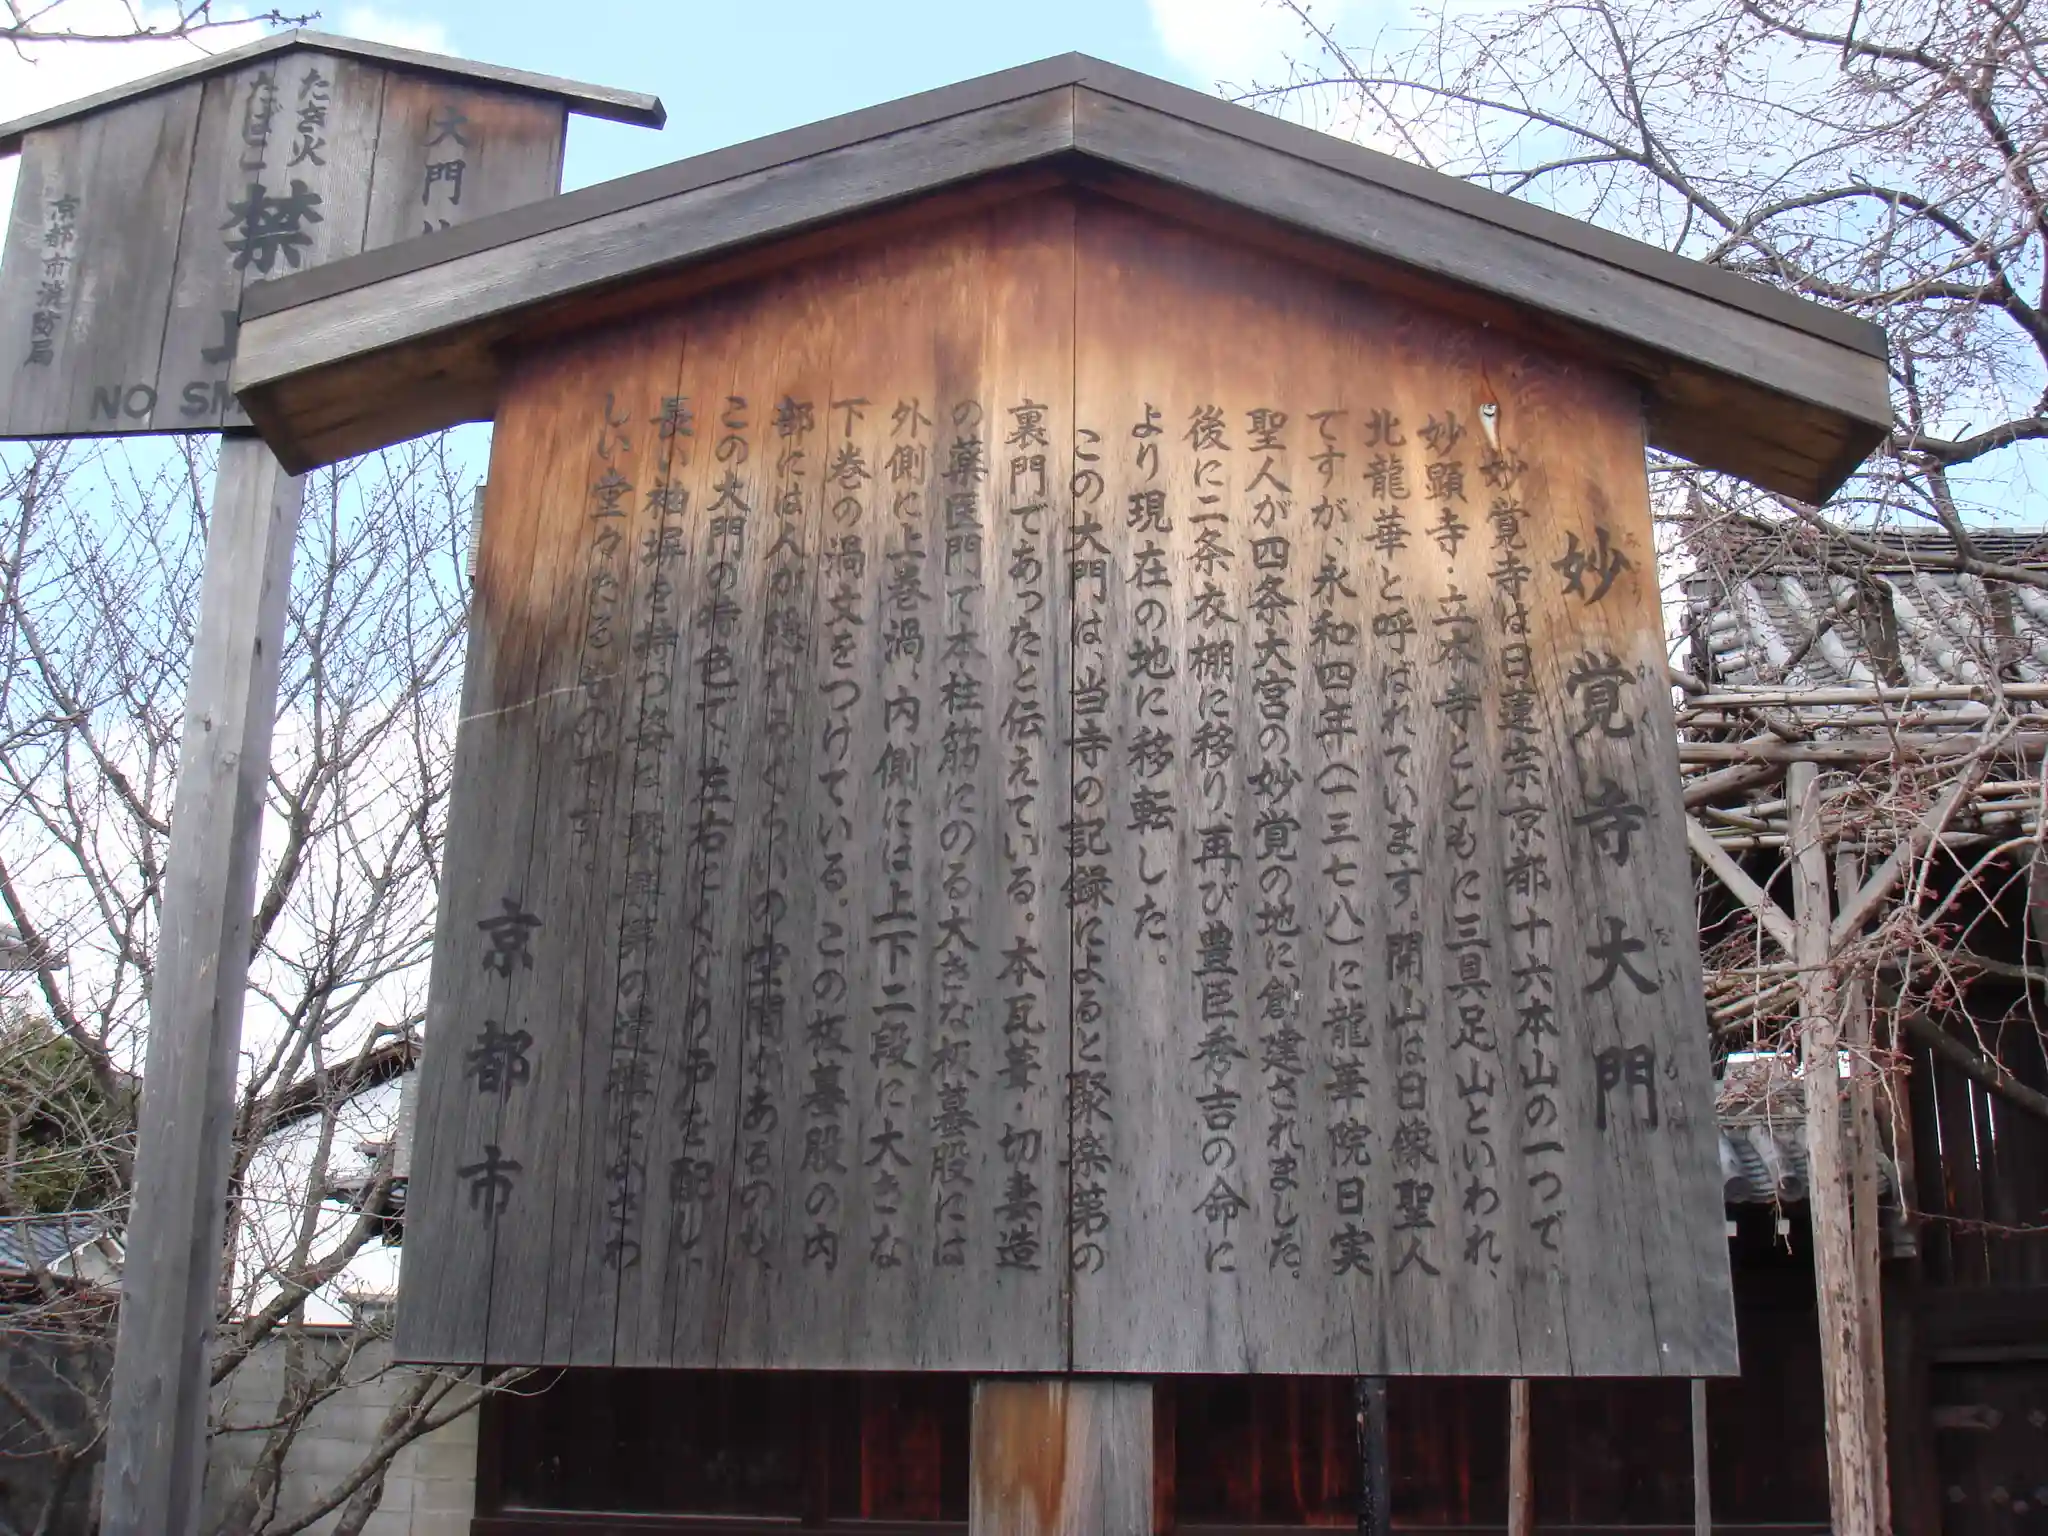 妙覚寺大門
みょう かく じ だい もん
妙覚寺は日蓮宗京都十六本山の一つで、
妙顕寺・立本寺とともに三具足山といわれ、
北龍華と呼ばれています。開山は日像聖人
ですが、永和四年（一三七八）に龍華院日実
聖人が四条大宮の妙覚の地に創建されました。
後に二条衣棚に移り、再び豊臣秀吉の命に
より現在の地に移転した。
この大門は、当寺の記録によると聚楽第の
裏門であったと伝えている。本瓦葺・切妻造
の薬医門で本柱筋にのる大きな板蟇股には
外側に上巻渦、内側には上下二段に大きな
下巻の渦文をつけている。この板蟇股の内
部には人が隠れるぐらいの空間があるのも、
この大門の特色で、左右にくぐり戸を配し、
長い袖塀を持つ姿は聚楽第の遺構にふさわ
しい堂々たるものです。
京都市
大門
たき火
たばこ
禁
NO SM
京都市消防局